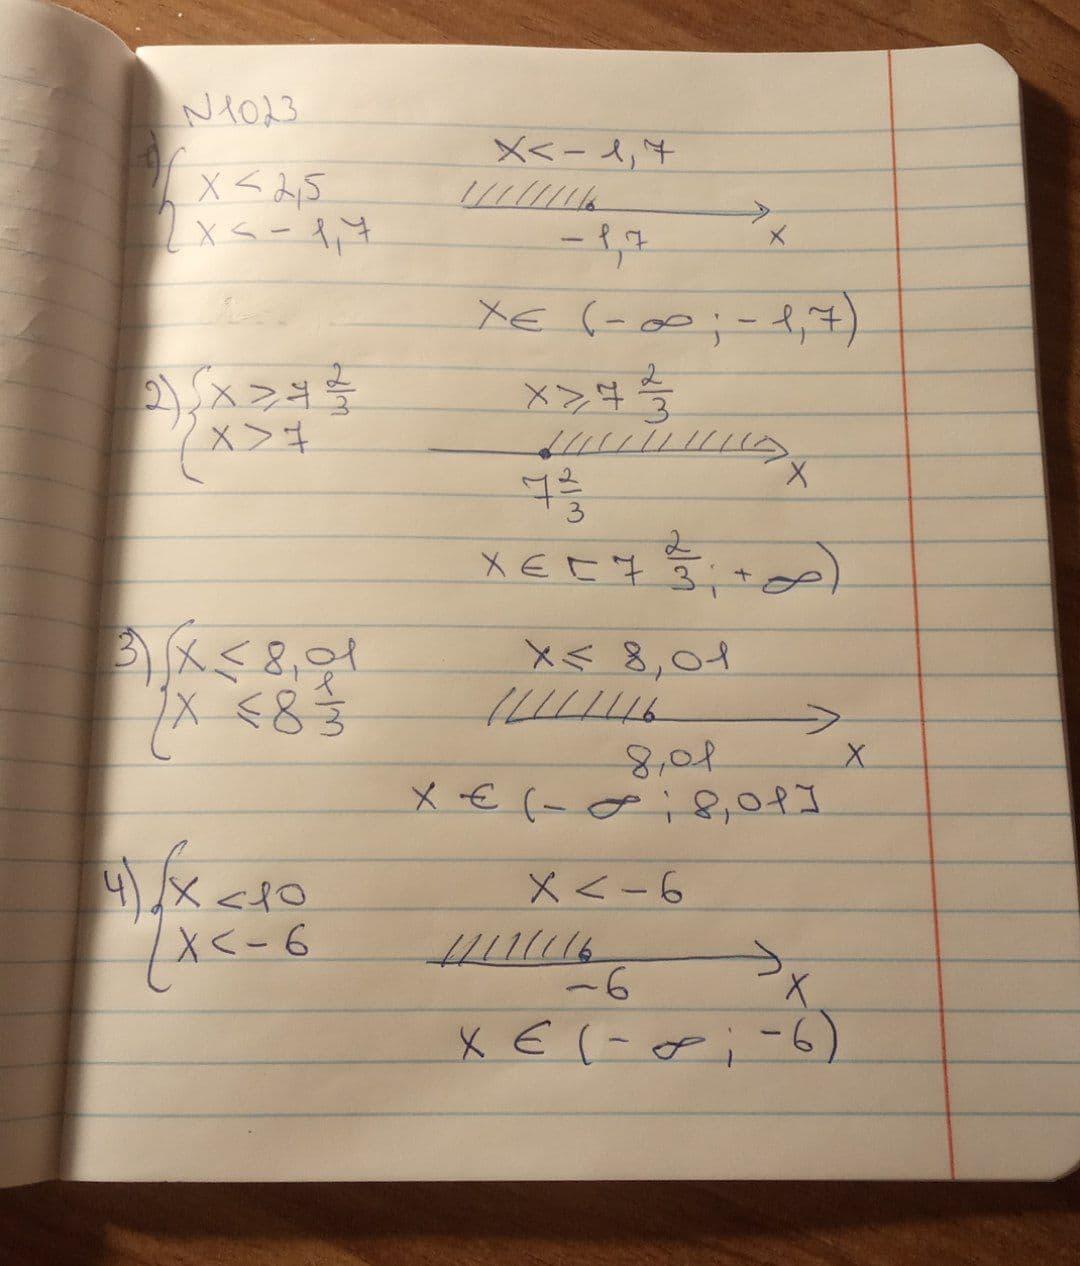 N1023
1) { x < 2,5
x < - 1,7
x < - 1,7
- 1,7
x
x ∈ (- ∞ ; - 1,7)
2) { x ⩾ 7 2/3
x > 7
x ⩾ 7 2/3
7 2/3
x
x ∈ [ 7 2/3 ; + ∞)
3) { x ⩽ 8,01
x ⩽ 8 1/3
x ⩽ 8,01
8,01
x
x ∈ (- ∞ ; 8,01]
4) { x < 10
x < - 6
x < - 6
- 6
x
x ∈ (- ∞ ; -6)